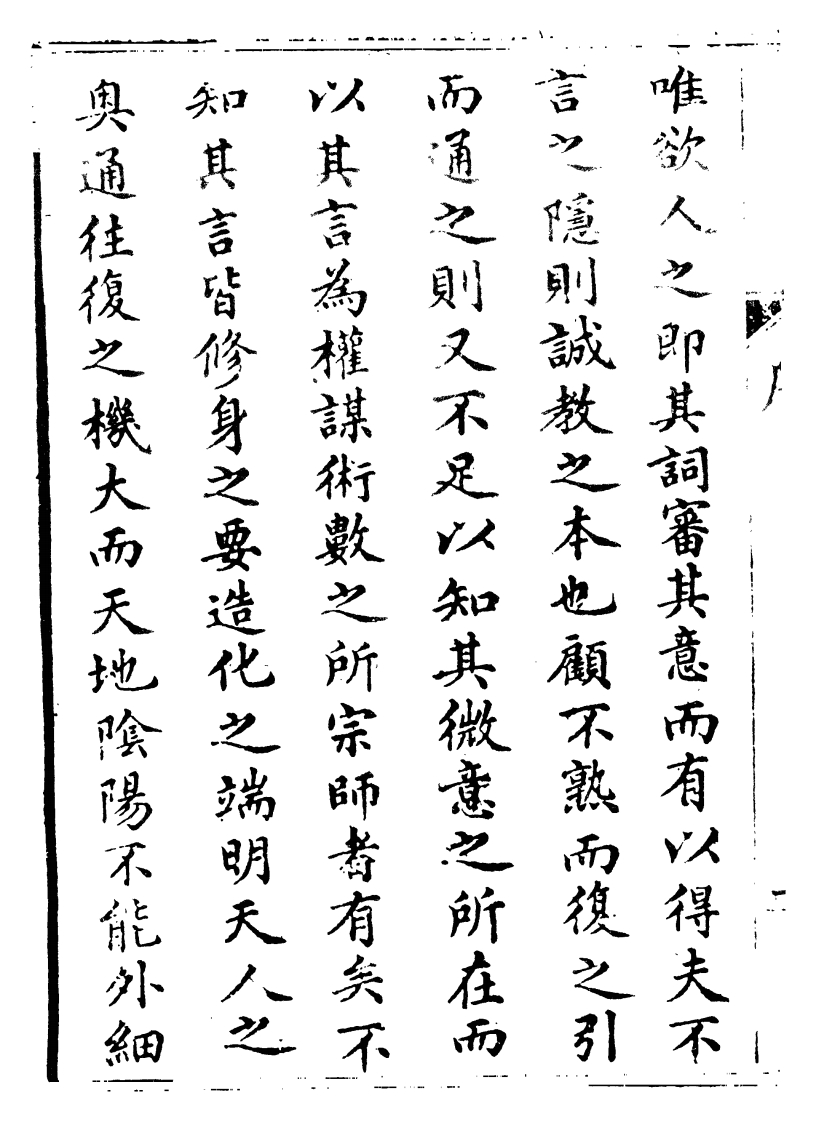 唯欲人之即其詞審其意而有以得夫不
言之隱則誠教之本也顧不熟而復之引
而通之則又不足以知其微意之所在而
以其言為權謀術數之所宗師者有矣不
知其言皆修身之要造化之端明天人之
奥通往復之機大而天地陰陽不能外細